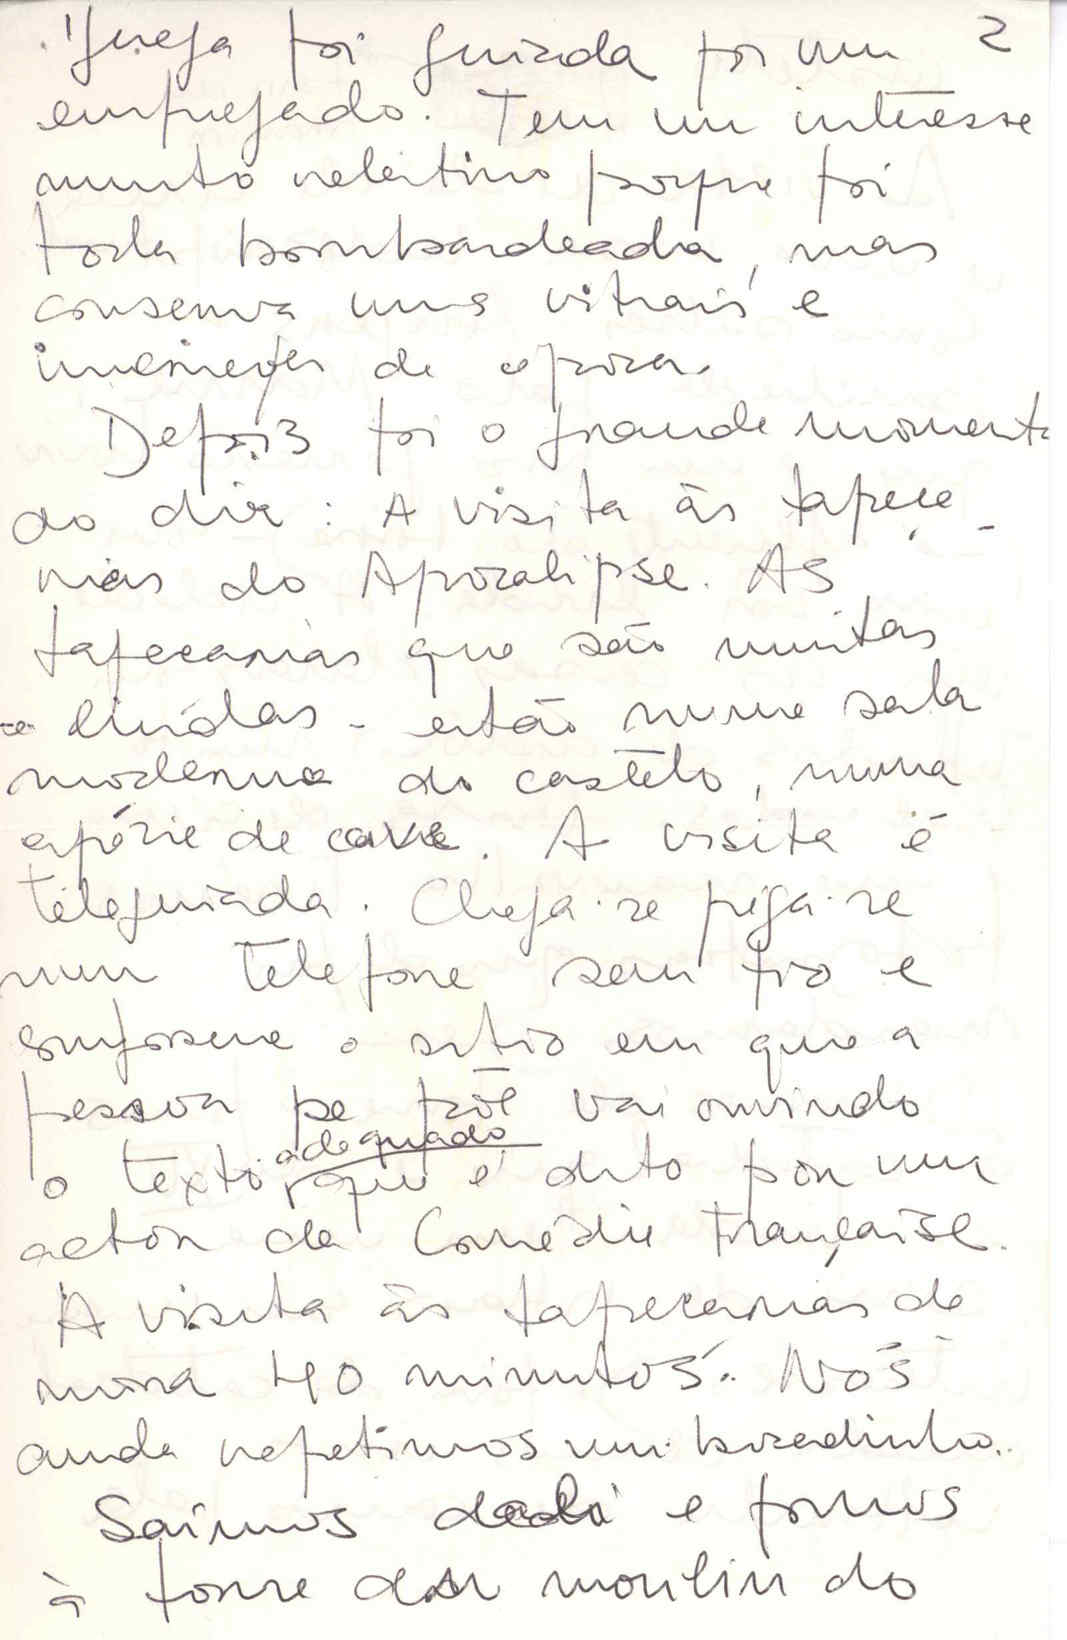 2
Igreja foi guiada por um
empregado. Tem um interesse
muito relativo porque foi
toda bombardeada, mas
conserva uns vitrais e
de época.
Depois foi o grande momento
do dia: A visita às tapeça-
rias do Apocalipse. As
tapeçarias que são muitas
e lindas - estão numa sala
moderna do castelo, numa
espécie de cave. A visita é
teleguiada. Chega-se pega-se
num telefone sem fio e
conforme o sitio em que a
pessoa se põe vai ouvindo
o texto, adequado que é dito por um
actor da Comédie Française.
A visita às tapeçarias de
mora 40 minutos. Nós
ainda repetimos um bocadinho.
Saimos dali e fomos
à torre du moulin do